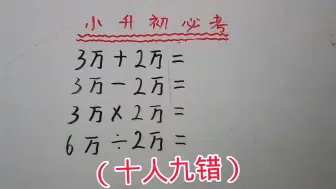 小升初必考
3万+2万=
3万-2万=
3万×2万=
6万÷2万=
(十人九错)